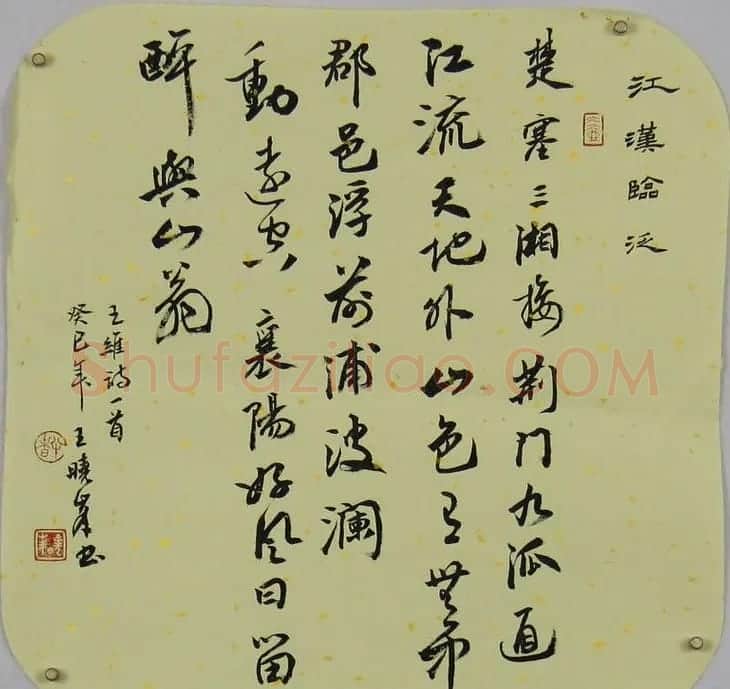 江漢臨泛
楚塞三湘接荆門九派通
江流天地外山色有無中
郡邑浮前浦波瀾
動遠空襄陽好風日留
醉與山翁
王維詩一首
癸巳年王曉峯书
Shufaziliao.COM